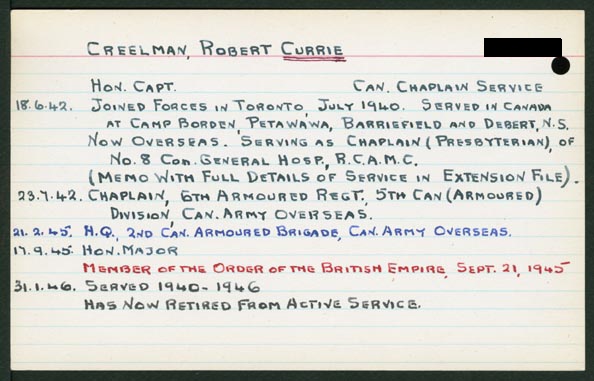 CREELMAN, ROBERT CURRIE
HON. CAPT. CAN. CHAPLAIN SERVICE
18.6.42. JOINED FORCES IN TORONTO, JULY 1940. SERVED IN CANADA
AT CAMP BORDEN, PETAWAWA, BARRIEFIELD AND DEBERT, N.S.
NOW OVERSEAS. SERVING AS CHAPLAIN (PRESBYTERIAN), OF
NO. 8 CDN. GENERAL HOSP., R.C.A.M.C.
(MEMO WITH FULL DETAILS OF SERVICE IN EXTENSION FILE).
23.7.42. CHAPLAIN, 6TH ARMOURED REGT., 5TH CAN (ARMOURED)
DIVISION, CAN. ARMY OVERSEAS.
21.2.45. H.Q., 2ND CAN. ARMOURED BRIGADE, CAN. ARMY OVERSEAS.
17.9.45. HON. MAJOR
MEMBER OF THE ORDER OF THE BRITISH EMPIRE, SEPT. 21, 1945
31.1.46. SERVED 1940-1946
HAS NOW RETIRED FROM ACTIVE SERVICE.